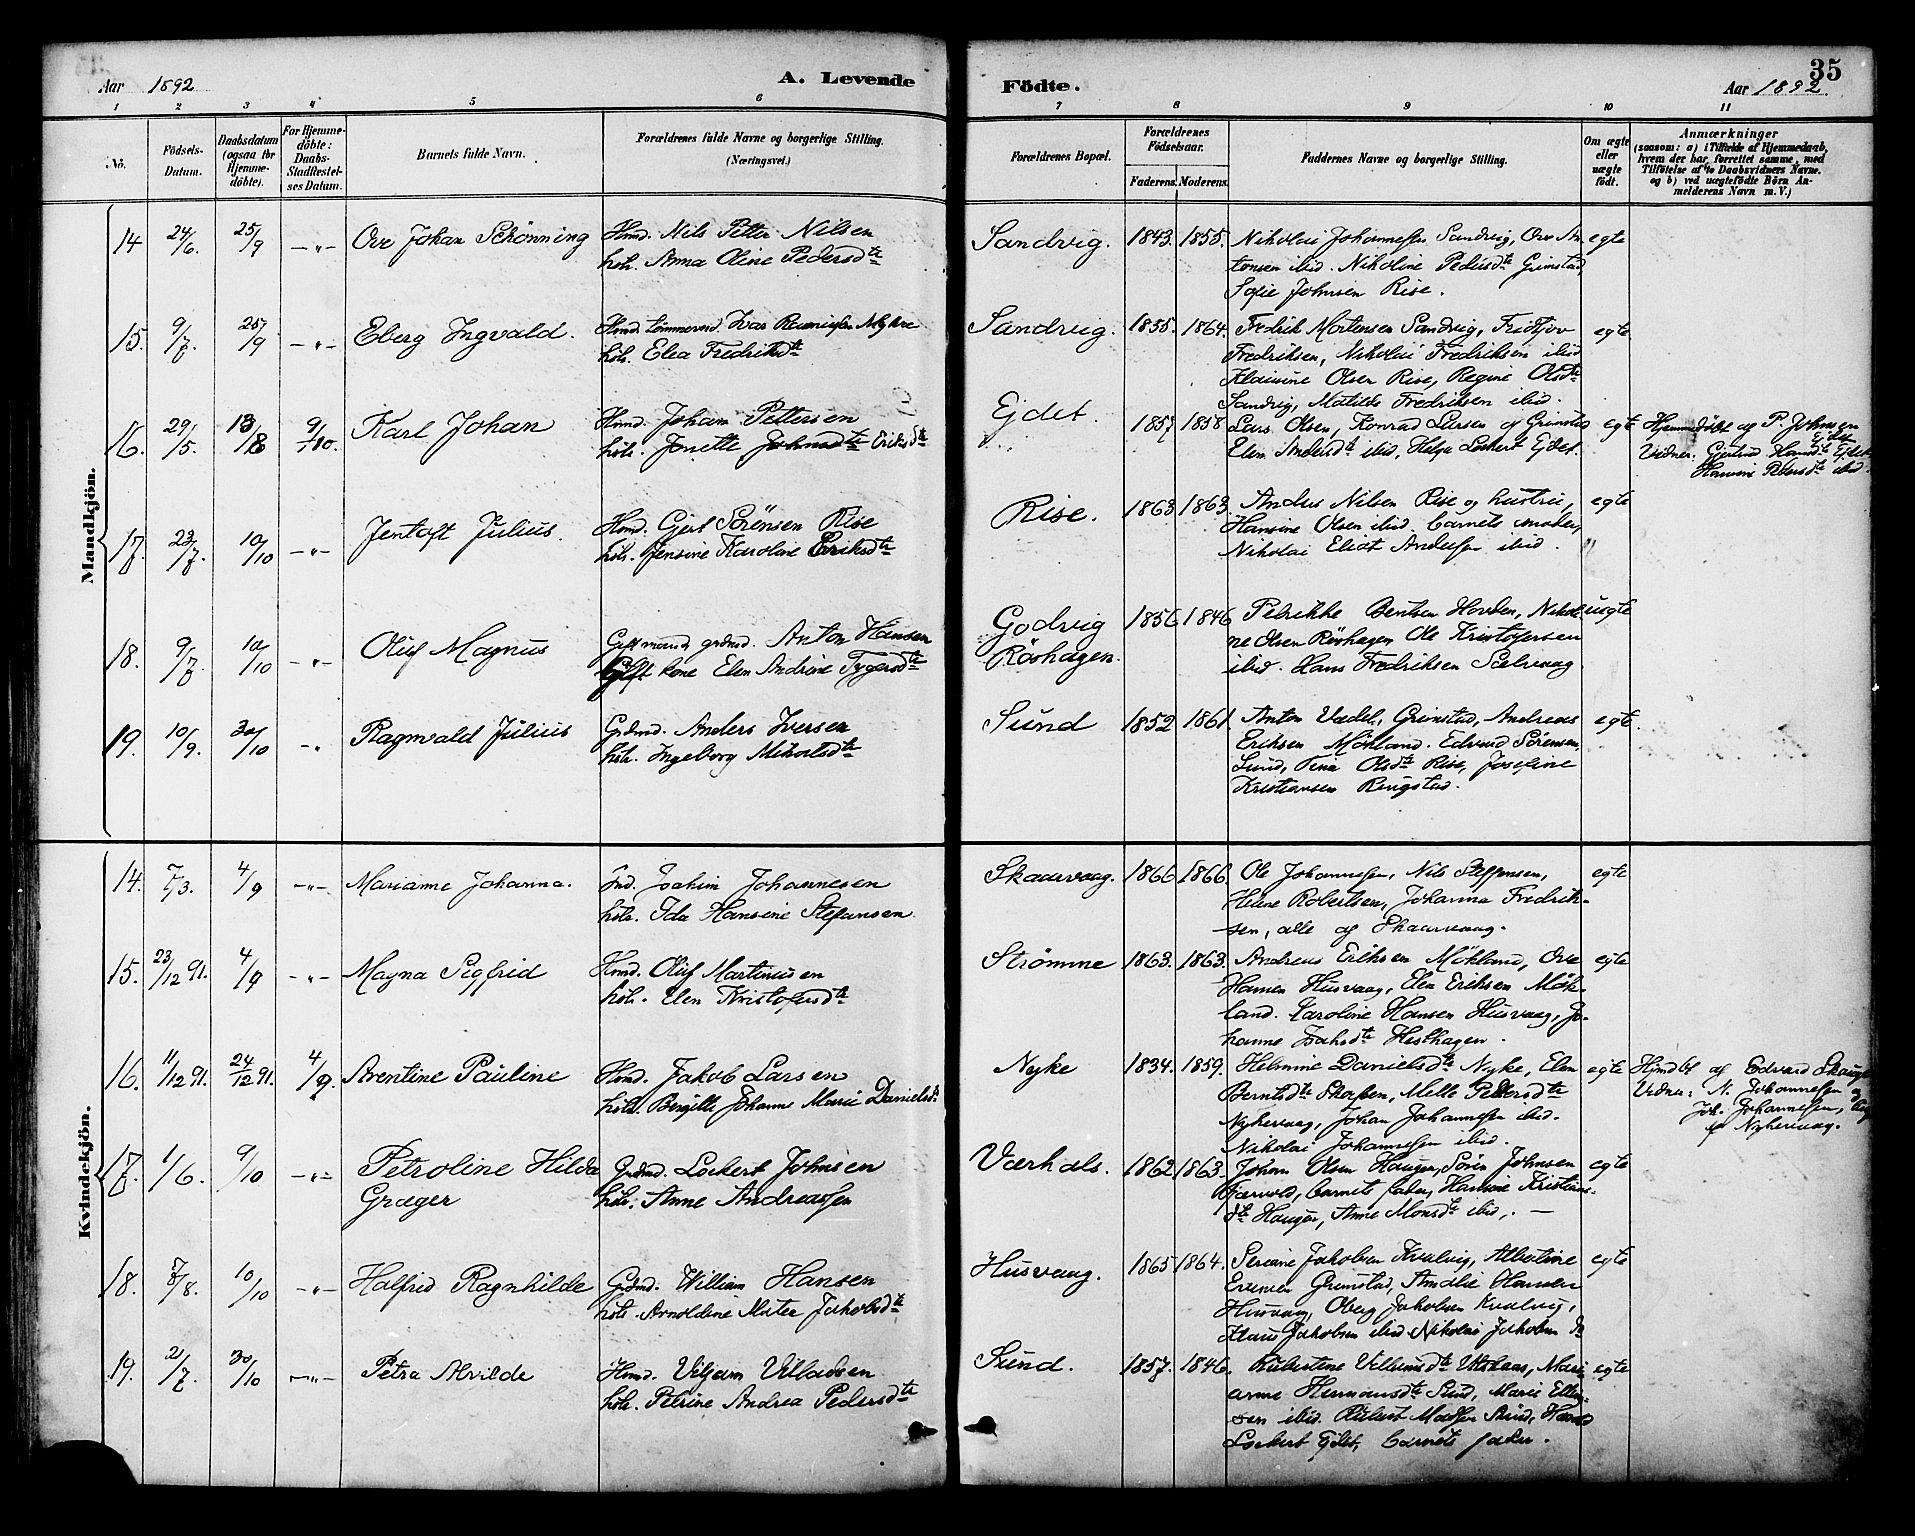 Aar 1892
A. Levende
Födte.
Aar 1892.
35
1 2 3 4 5 6 7 8 9 10 11
No.
Födsels-
Datum.
Daabsdatum
(ogsaa for
Hjemme-
döbte).
For Hjemme-
döbte:
Daabs-
Stadfæstel-
ses Datum.
Barnets fulde Navn.
Forældrenes fulde Navne og borgerlige Stilling.
(Næringsvei.)
Forældrenes Bopæl.
Forældrenes
Födselsaar.
Faderens. Moderens.
Faddernes Navne og borgerlige Stilling.
Om ægte
eller
uægte
født.
Anmærkninger
(saasom: a) i Tilfælde af Hjemmedaab,
hvem der har forrettet samme, med
Tilföielse af to Daabsvidners Navne.
og b) ved uægtefödte Börn An-
melderens Navn m. V.)
Mandkjön.
14 24/6. 25/9 —"— Ove Johan Schönning
Hmd. Nils Petter Nilsen
hstr. Anna Oline Pedersdte
Sandvig. 1843. 1855.
Nikolai Johannessen Sandvig, Ove An-
tonsen ibid. Nikoline Pedersdte Grimstad,
Sofie Johnsen Rise.
egte
15. 9/7. 25/9 —"— Eberg Ingvald.
hstr. Elea Fredriksdte
Sandvig. 1855. 1864.
Fredrik Mortensen Sandvig, Fridtjov
Fredriksen, Nikolai Fredriksen ibid
Olsen Rise, Regine Olsdte
Sandvig, Matilde Fredriksen ibid.
egte.
16. 29/5. 13/8 9/10. Karl Johan
Hmd. Johan Pettersen
hstr. Jonette Johnsdte Eriksdte
Ejdet. 1857 1858
Lars Olsen, Konrad Larsen af Grimstad
Elen Andersdte ibid, Helga Lockert Ejdet.
egte
Hjemmedöbt af P. Johnsen
Ejdet
Vidner. Gjertrud Hansdte Ejdet
Hansine Pedersdte ibid.
17. 23/7. 10/10 —"— Jentoft Julius.
Hmd. Gjert Sörensen Rise
hstr. Jensine Karoline Eriksdte
Rise. 1863 1863
Anders Nilsen Rise og hustru,
Hansine Olsen ibid. barnets moder,
Nikolai Eliot Andersen ibid.
egte
18. 9/7. 10/10 —"— Oluf Magnus
Gift mand grdmd. Anton Hansen
Gift kone Elen Andrine Tygersdte
Godvig
Röshagen. 1856 1846
Petrikke Bentsen Hovden, Nikoli-
ne Olsen Röshagen Ole Kristofersen
ibid. Hans Fredriksen Sælvaag
uegte
19. 10/9. 30/10 —"— Ragnvald Julius
Grdmd. Anders Iversen
hstr. Ingeborg Mikalsdte
Sund 1852 1861.
Anton Vædel, Grimstad, Andreas
Eriksen Mökland. Edvard Sörensen,
Sund, Tina Olsdte Rise, Josefine
Kristiansen Ringstad.
egte.
Kvindekjön.
14. 7/3. 4/9 —"— Marianne Johanna.
Ind. Joakim Johannesen
hstr. Ida Hansine Stefansen
Skaarvaag. 1866 1866.
Ole Johannessen, Nils Steffensen,
Helene Robertsen, Johanna Fredrik-
sen, alle af Skaarvaag.
egte
15. 23/12 91. 4/9 —"— Magna Sigfrid
Hmd. Oluf Martinussen
hstr. Elen Kristofersdte
Strömme 1863. 1863.
Andreas Eriksen Mökland, Ove
Hansen Husvaag, Elen Eriksen Mök-
land. Karoline Hansen Husvaag, Jo-
hanne Hesthagen.
egte
16. 11/12 91. 24/12 91. 4/9. Arentine Pauline
Hmd. Jakob Larsen
hstr. Bergitte Johanne Marie Danielsdt
Nyke 1834. 1859.
Helmine Danielsdte Nyke, Elen
Berntsdte, Mette Pedersdte
Nykevaag, Johan Johannessen ibid.
Nikolai Johannessen ibid.
egte
Hjmdbt af Edvard
Vidner: N. Johannessen og
Joh. Johannessen, begge
af Nykevaag.
17. 1/6. 9/10 —"— Petroline Hilda
Græger
Grdmd. Lockert Johnsen
hstr. Anne Andreassen
Værhals. 1862 1863.
Johan Olsen Haugen, Sören Johnsen
Tjærvold, barnets fader, Hansine Kristians-
dte Haugen, Anne Monsdte ibid,. —
egte
18. 7/8. 10/10 —"— Halfrid Ragnhilde
Grdmd. William Hansen
hstr. Arnoldine Jakobsdte
Husvaag. 1865 1864.
Jakobsen Kvalvig, Albertine
Grimstad, Amalie Hansen
Husvaag, Oberg Jakobsen Kvalvig,
Klaus Jakobsen ibid Nikolai Jakobsen
egte
19. 2/7. 30/10 —"— Petra Alvilde
Hmd. Viljam Ulladsen
hstr. Petrine Andrea Pedersdte
Sund. 1857. 1846.
Mari-
anne Hermansdte Sund, Marie Elling-
sen ibid. Madsen Sund, Hans
Lockert Ejdet, barnets fader.
egte